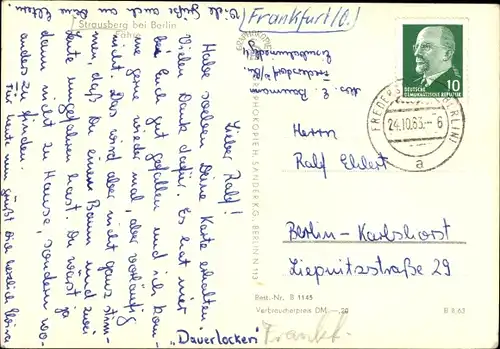 Viele Grüße auch an Deine Eltern
(Frankfurt/O.)
Strausberg bei Berlin
Fähre
Lieber Ralf!
Habe soeben Deine Karte erhalten.
Vielen Dank dafür. Es hat mir
bei Euch gut gefallen und ich kom-
me gerne wieder mal, aber vorläufig
nicht. Das wird aber nicht ganz stim-
men, daß Du einen Baum und zwei
Leute umgefahren hast. Du warst ja
nicht zu Hause, sondern wo
anders zu finden.
Für heute nun grüßt Dich herzlich
"Dauerlocken"
Abs. E. Baumann
Fredersdorf b/Bln.
DEUTSCHE
DEMOKRATISCHE REPUBLIK
10
FREDERSDORF (BERLIN)
24.10.63.- 6
a
Herrn
Ralf Eldert
Berlin-Karlshorst
Liepnitzstraße 29
PHOTOKOPIEN-SANDER KG., BERLIN N 113
Best.-Nr. B 1145
Verbraucherpreis DM -,20
B 8,63
Frankf.